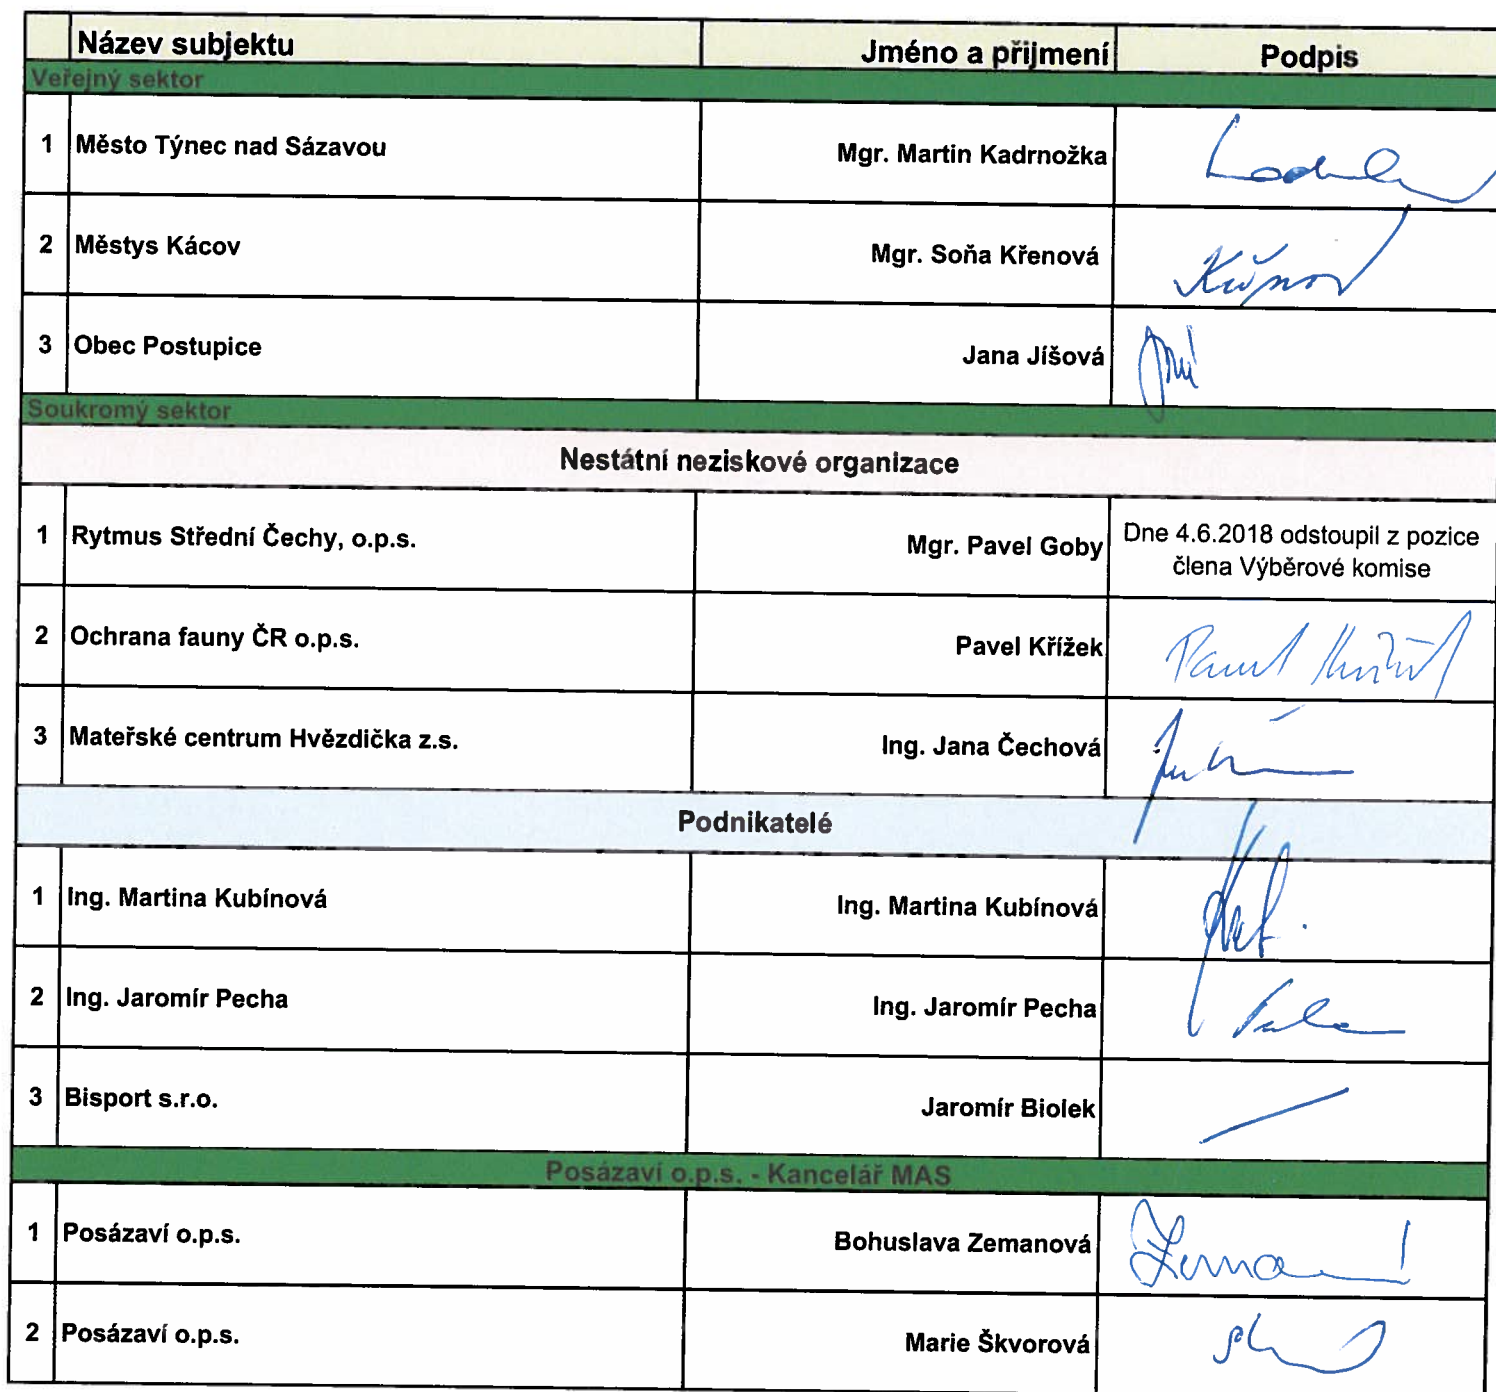 Název subjektu Jméno a přijmení Podpis
Veřejný sektor
1 Město Týnec nad Sázavou Mgr. Martin Kadrnožka
2 Městys Kácov Mgr. Soňa Křenová
3 Obec Postupice Jana Jíšová
Soukromý sektor
Nestátní neziskové organizace
1 Rytmus Střední Čechy, o.p.s. Mgr. Pavel Goby Dne 4.6.2018 odstoupil z pozice
člena Výběrové komise
2 Ochrana fauny ČR o.p.s. Pavel Křížek Pavel Křížek
3 Mateřské centrum Hvězdička z.s. Ing. Jana Čechová
Podnikatelé
1 Ing. Martina Kubínová Ing. Martina Kubínová
2 Ing. Jaromír Pecha Ing. Jaromír Pecha
3 Bisport s.r.o. Jaromír Biolek
Posázaví o.p.s. - Kancelář MAS
1 Posázaví o.p.s. Bohuslava Zemanová
2 Posázaví o.p.s. Marie Škvorová